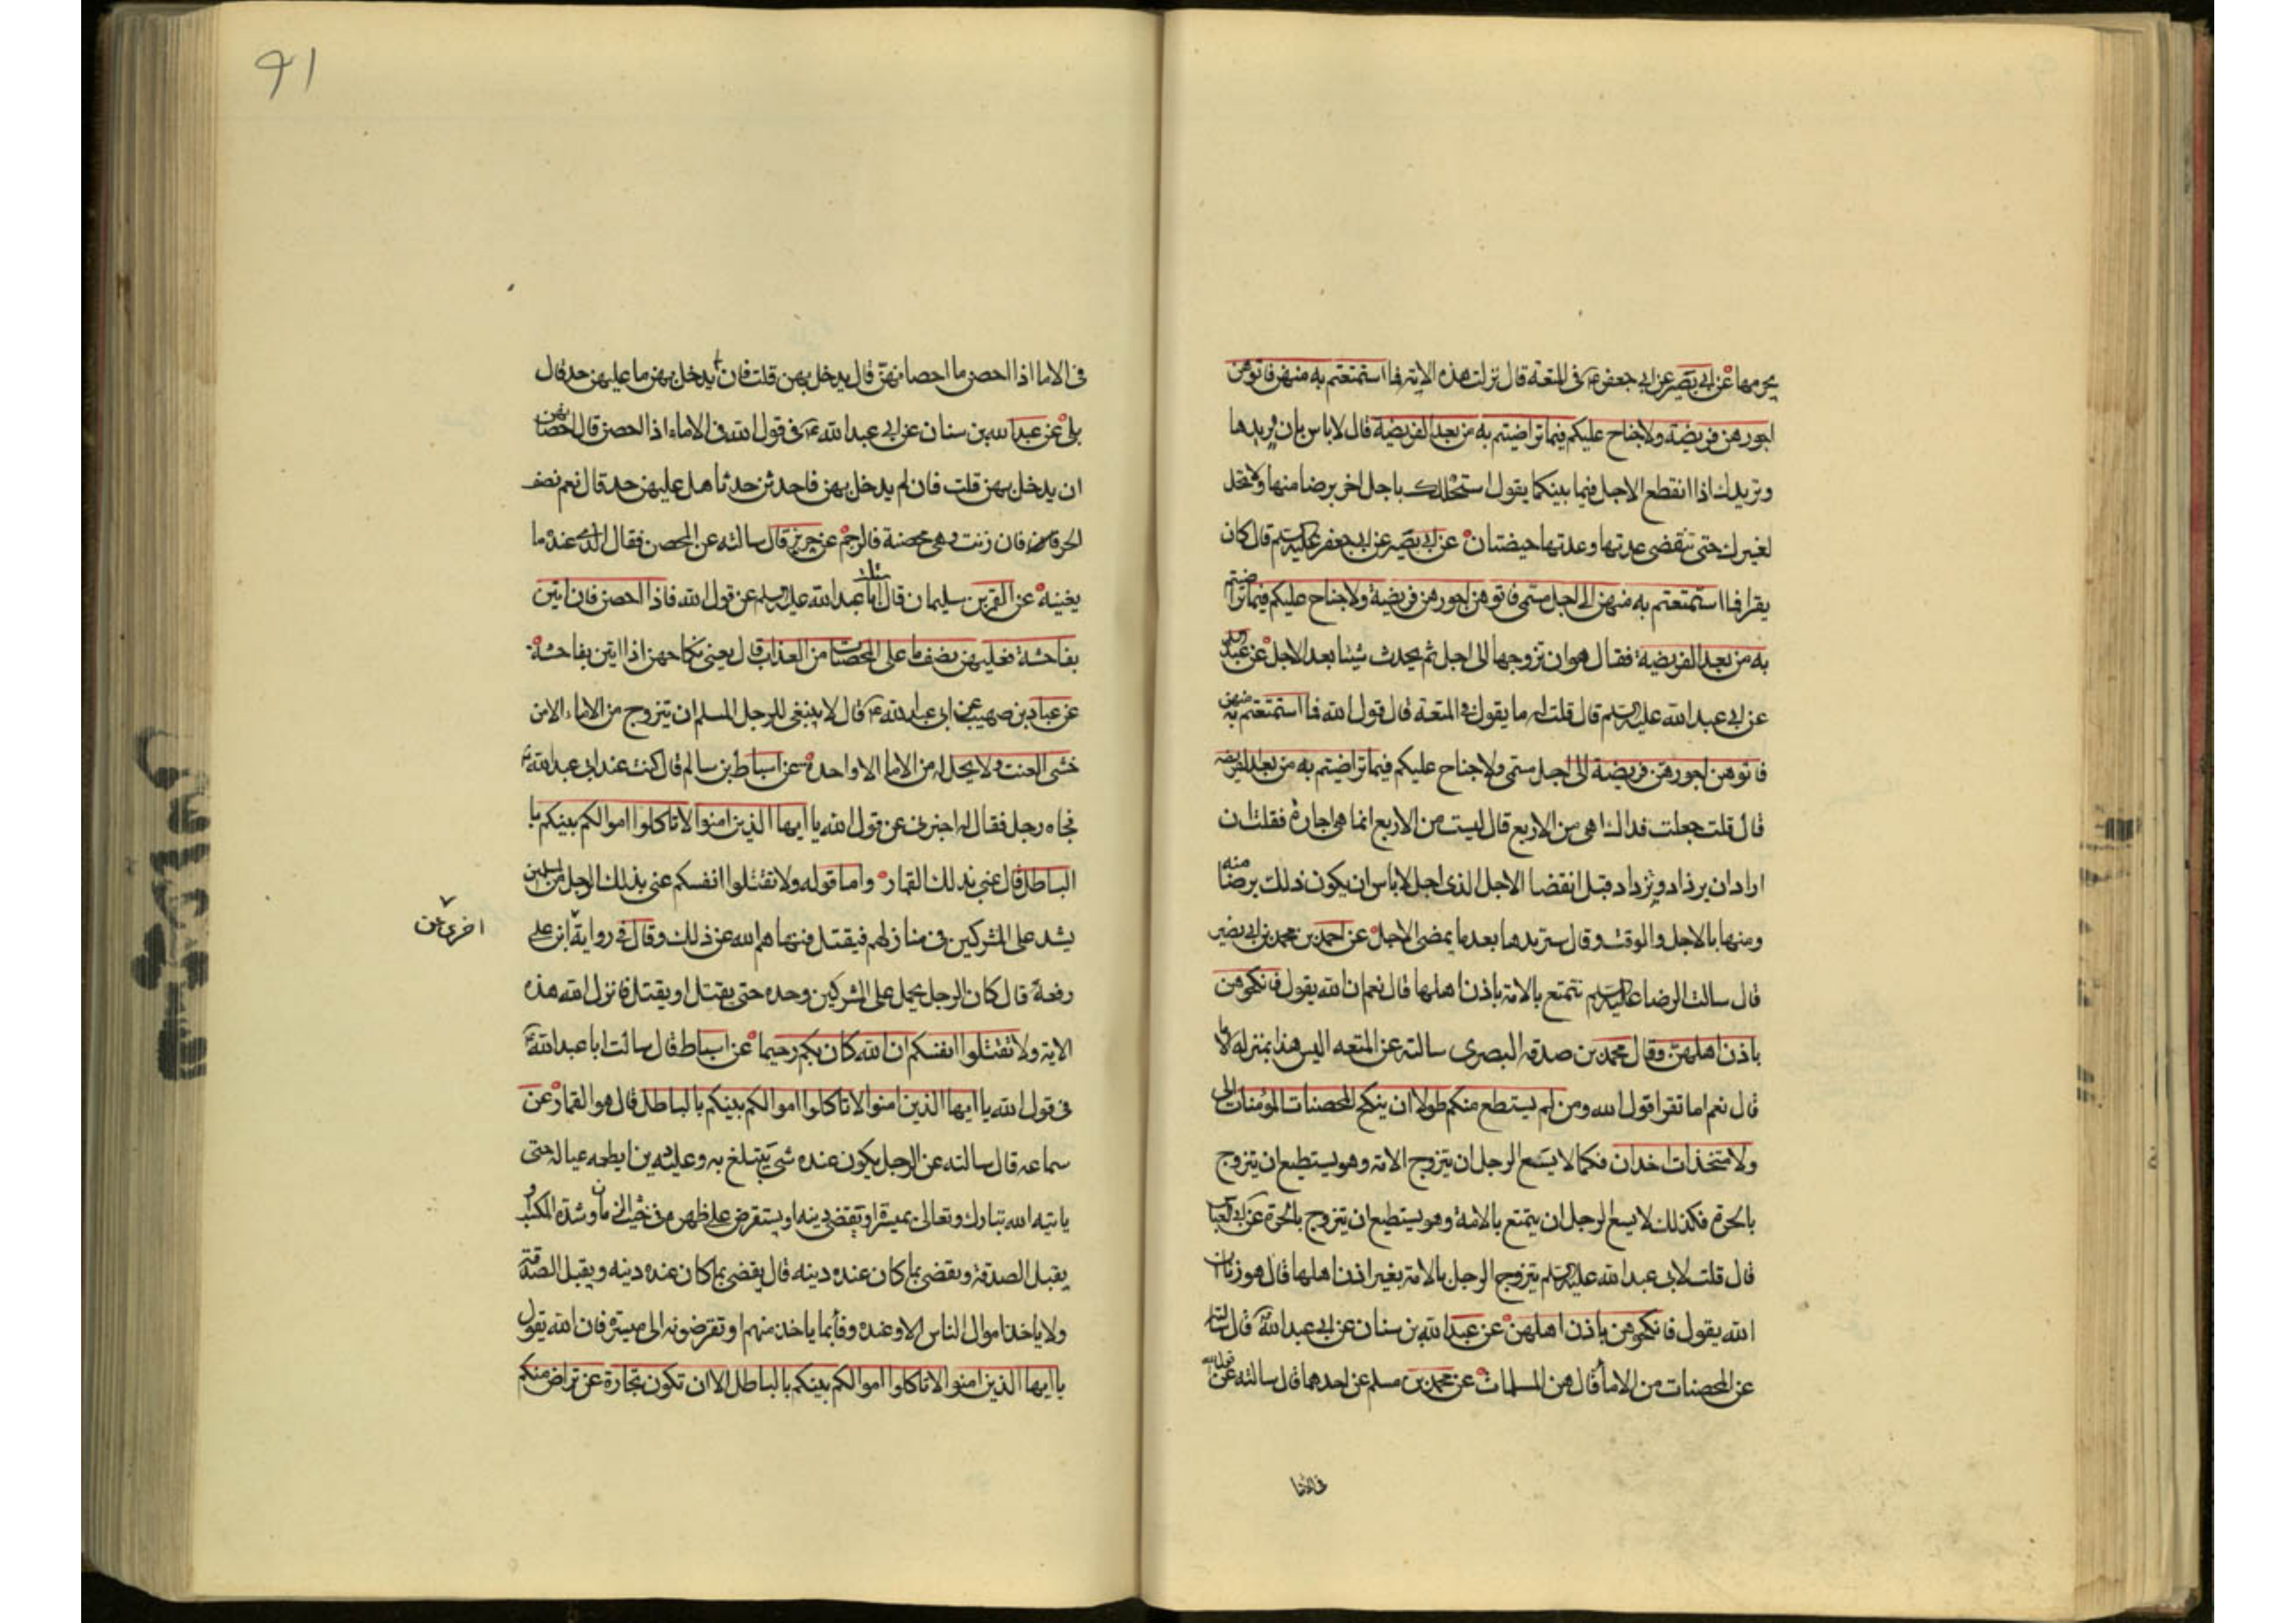 يحرمها عن ابي بصير عن ابي جعفر ع في المتعة قال نزلت هذه الاية فما استمتعتم به منهن فاتوهن
اجورهن فريضة ولا جناح عليكم فيما تراضيتم به من بعد الفريضة قال لا باس بان تزيدها
وتزيدك اذا انقطع الاجل فيما بينكما يقول استحللتك باجل اخر برضا منها ولا تحل
لغيرك حتى تنقضي عدتها وعدتها حيضتان عن ابي بصير عن ابي جعفر عليه السلم قال كان
يقرا فما استمتعتم به منهن الى اجل مسمى فاتوهن اجورهن فريضة ولا جناح عليكم فيما تراضيتم
به من بعد الفريضة فقال هو ان تزوجها الى اجل ثم يحدث شيئا بعد الاجل عن عبد
عن ابي عبد الله عليه السلم قال قلت له ما يقول في المتعة قال قول الله فما استمتعتم به منهن
فاتوهن اجورهن فريضة الى اجل مسمى ولا جناح عليكم فيما تراضيتم به من بعد الفريضة
قال قلت جعلت فداك اهي من الاربع قال ليست من الاربع انما هي اجارة فقلت ان
اراد ان يزداد ويزداد قبل انقضا الاجل الذي اجل لا باس ان يكون ذلك برضا منه
ومنها بالاجل والوقت وقال سيزيدها بعد ما يمضي الاجل عن احمد بن محمد بن ابي نصير
قال سالت الرضا عليه السلم تتمتع بالامة باذن اهلها قال نعم ان الله يقول فانكحوهن
باذن اهلهن وقال محمد بن صدقه البصري سالته عن المتعه اليس هذا بمنزله الاما
قال نعم اما تقرا قول الله ومن لم يستطع منكم طولا ان ينكح المحصنات المؤمنات الى
ولا متخذات اخدان فكما لا يسع الرجل ان يتزوج الامة وهو يستطيع ان يتزوج
بالحرة فكذلك لا يسع الرجل ان يتمتع بالامة وهو يستطيع ان يتزوج بالحرة عن ابي العباس
قال قلت لابي عبد الله عليه السلم يتزوج الرجل بالامة بغير اذن اهلها قال هو زنا ان
الله يقول فانكحوهن باذن اهلهن عن عبد الله بن سنان عن ابي عبد الله ع قال سالته
عن المحصنات من الاما قال هن المسلمات عن محمد بن مسلم عن احدهما قال سالته عن قول الله
في الاما اذا احصن ما احصانهن قال يدخل بهن قلت فان لم يدخل بهن ما عليهن حد قال
بلى عن عبد الله بن سنان عن ابي عبد الله ع في قول الله في الاماء اذا احصن قال احصانهن
ان يدخل بهن قلت فان لم يدخل بهن فاحدثن حدثا هل عليهن حد قال نعم نصف
الحر فان زنت وهي محصنة فالرجم عن حريز قال سالته عن المحصن فقال الذي عنده ما
يغنيه عن القسم بن سليمان قال ابا عبد الله عليه السلم عن قول الله فاذا احصن فان اتين
بفاحشة فعليهن نصف ما على المحصنات من العذاب قال يعني نكاحهن اذا اتين بفاحشة
عن عباد بن صهيب عن ابي عبد الله ع قال لا ينبغي للرجل المسلم ان يتزوج من الاماء الا من
خشى العنت ولا يحل له من الاما الا واحدة عن اسباط بن سالم قال كنت عند ابي عبد الله ع
فجاه رجل فقال له اخبرني عن قول الله يا ايها الذين امنوا لا تاكلوا اموالكم بينكم با
الباطل قال عنى بذلك القمار واما قوله ولا تقتلوا انفسكم عنى بذلك الرجل من المسلمين
يشد على المشركين في منازلهم فيقتل فنهاهم الله عن ذلك وقال في رواية ابن علي
اخرى عن
رفعة قال كان الرجل يحمل على المشركين وحده حتى يقتل او يقتل فانزل الله هذه
الاية ولا تقتلوا انفسكم ان الله كان بكم رحيما عن اسباط قال سالت ابا عبد الله ع
في قول الله يا ايها الذين امنوا لا تاكلوا اموالكم بينكم بالباطل قال هو القمار عن
سماعه قال سالته عن الرجل يكون عنده شي يتبلغ به وعليه دين ايطعمه عياله حتى
ياتيه الله تبارك وتعالى بميسرة او يقضي دينه او يستقرض على ظهره في خبث الزمان وشدة المكاسب
يقبل الصدقة ويقضي بما كان عنده دينه قال يقضي بما كان عنده دينه ويقبل الصدقة
ولا ياخذ اموال الناس الا وعنده وفا بما ياخذ منهم او تقرضونه الى ميسرة فان الله يقول
يا ايها الذين امنوا لا تاكلوا اموالكم بينكم بالباطل الا ان تكون تجارة عن تراض منكم
في الاما